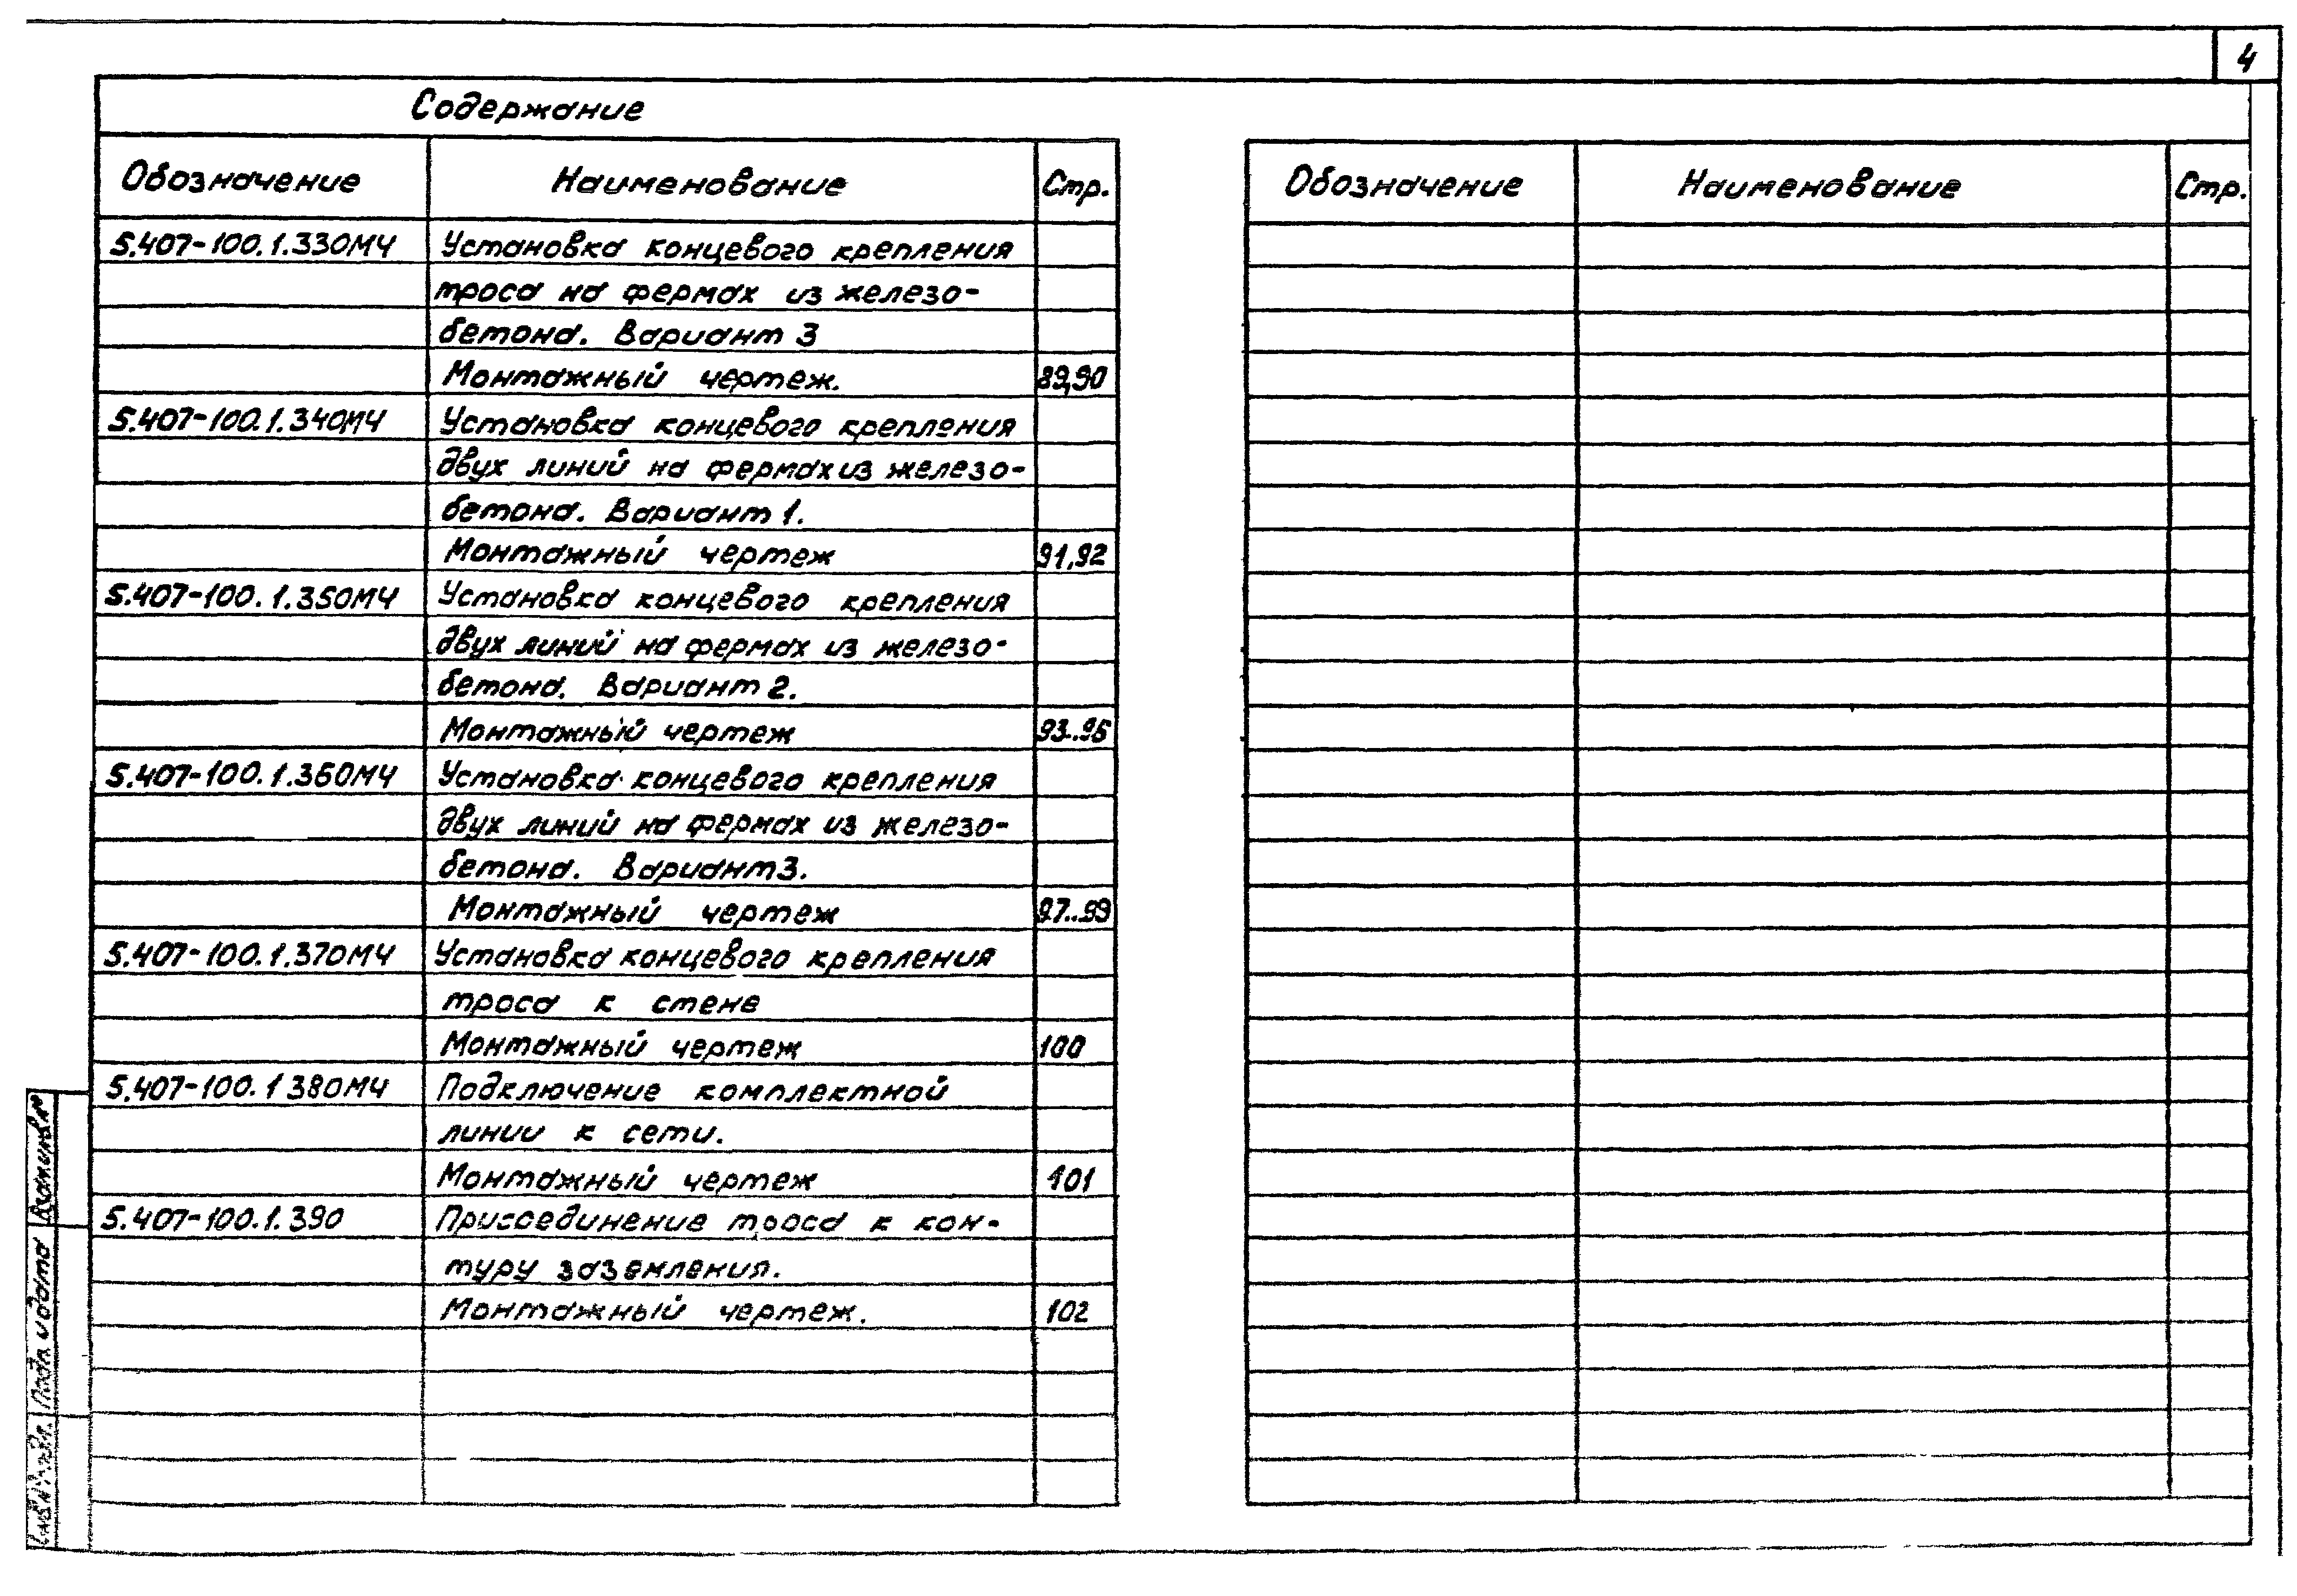 4
Содержание
Обозначение Наименование Стр.
5.407-100.1.330МЧ Установка концевого крепления
троса на фермах из железо-
бетона. Вариант 3
Монтажный чертеж. 89,90
5.407-100.1.340МЧ Установка концевого крепления
двух линий на фермах из железо-
бетона. Вариант 1.
Монтажный чертеж 91,92
5.407-100.1.350МЧ Установка концевого крепления
двух линий на фермах из железо-
бетона. Вариант 2.
Монтажный чертеж
5.407-100.1.360МЧ Установка концевого крепления
двух линий на фермах из железо-
бетона. Вариант 3.
Монтажный чертеж 97..99
5.407-100.1.370МЧ Установка концевого крепления
троса к стене
Монтажный чертеж 100
5.407-100.1 380МЧ Подключение комплектной
линии к сети.
Монтажный чертеж 101
5.407-100.1.390 Присоединение троса к кон-
туру заземления.
Монтажный чертеж. 102
Обозначение Наименование Стр.
Взам.инв.№
Подп. и дата